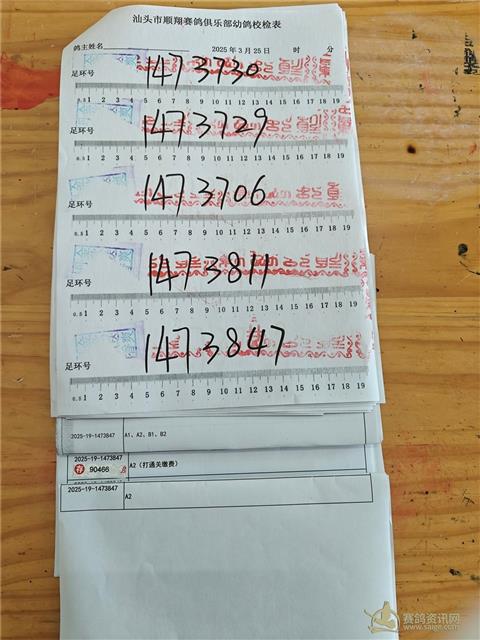 汕头市顺翔赛鸽俱乐部幼鸽校检表
鸽主姓名 2025年3月25日 时 分
足环号 1473730
0.5 1 2 3 4 5 6 7 8 9 10 11 12 13 14 15 16 17 18 19
足环号 1473729
0.5 1 2 3 4 5 6 7 8 9 10 11 12 13 14 15 16 17 18 19
足环号 1473706
0.5 1 2 3 4 5 6 7 8 9 10 11 12 13 14 15 16 17 18 19
足环号 1473811
0.5 1 2 3 4 5 6 7 8 9 10 11 12 13 14 15 16 17 18 19
足环号 1473847
0.5 1 2 3 4 5 6 7 8 9 10 11 12 13 14 15 16 17 18 19
2025-19-1473847 A1、A2、B1、B2
2025-19-1473847 A2（打通关缴费）
存 90466
2025-19-1473847
A2
赛鸽资讯网
www.saige.com